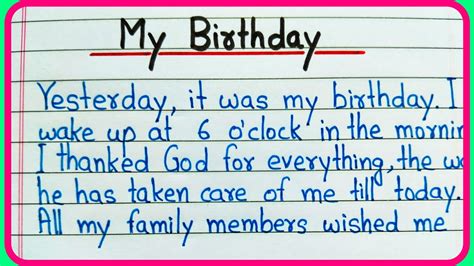 My Birthday
Yesterday, it was my birthday. I
wake up at 6 o'clock in the mornin
I thanked God for everything, the w
he has taken care of me till today.
All my family members wished me